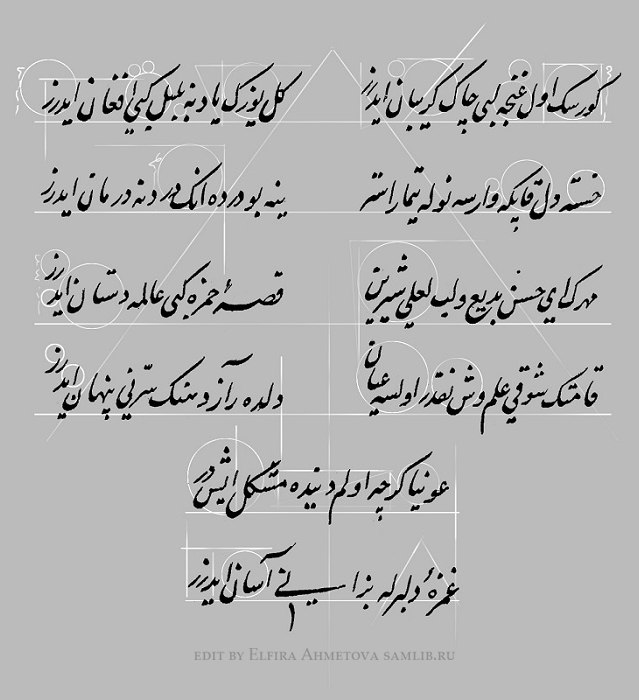 كورسك اول غنجه لبی چاك كریبان ایدرز
كل یوزك یادنه بلبل كبی افغان ایدرز
خسته دل قاپكه وارسه نوله تیمار استر
ینه بو درده انك دردنه درمان ایدرز
مهرك ای حسن بدیع و لب لعلی شیرین
قصهٔ حمزه كبی عالمه دستان ایدرز
قامتك شوقی علم وش نقدر اولسه عیان
دلده راز دهنك سرّنی پنهان ایدرز
عونیا كرچه اولم مشكل ایشدر
غمزهٔ دلبرله بز آسان ایدرز
edit by Elfira Ahmetova samlib.ru